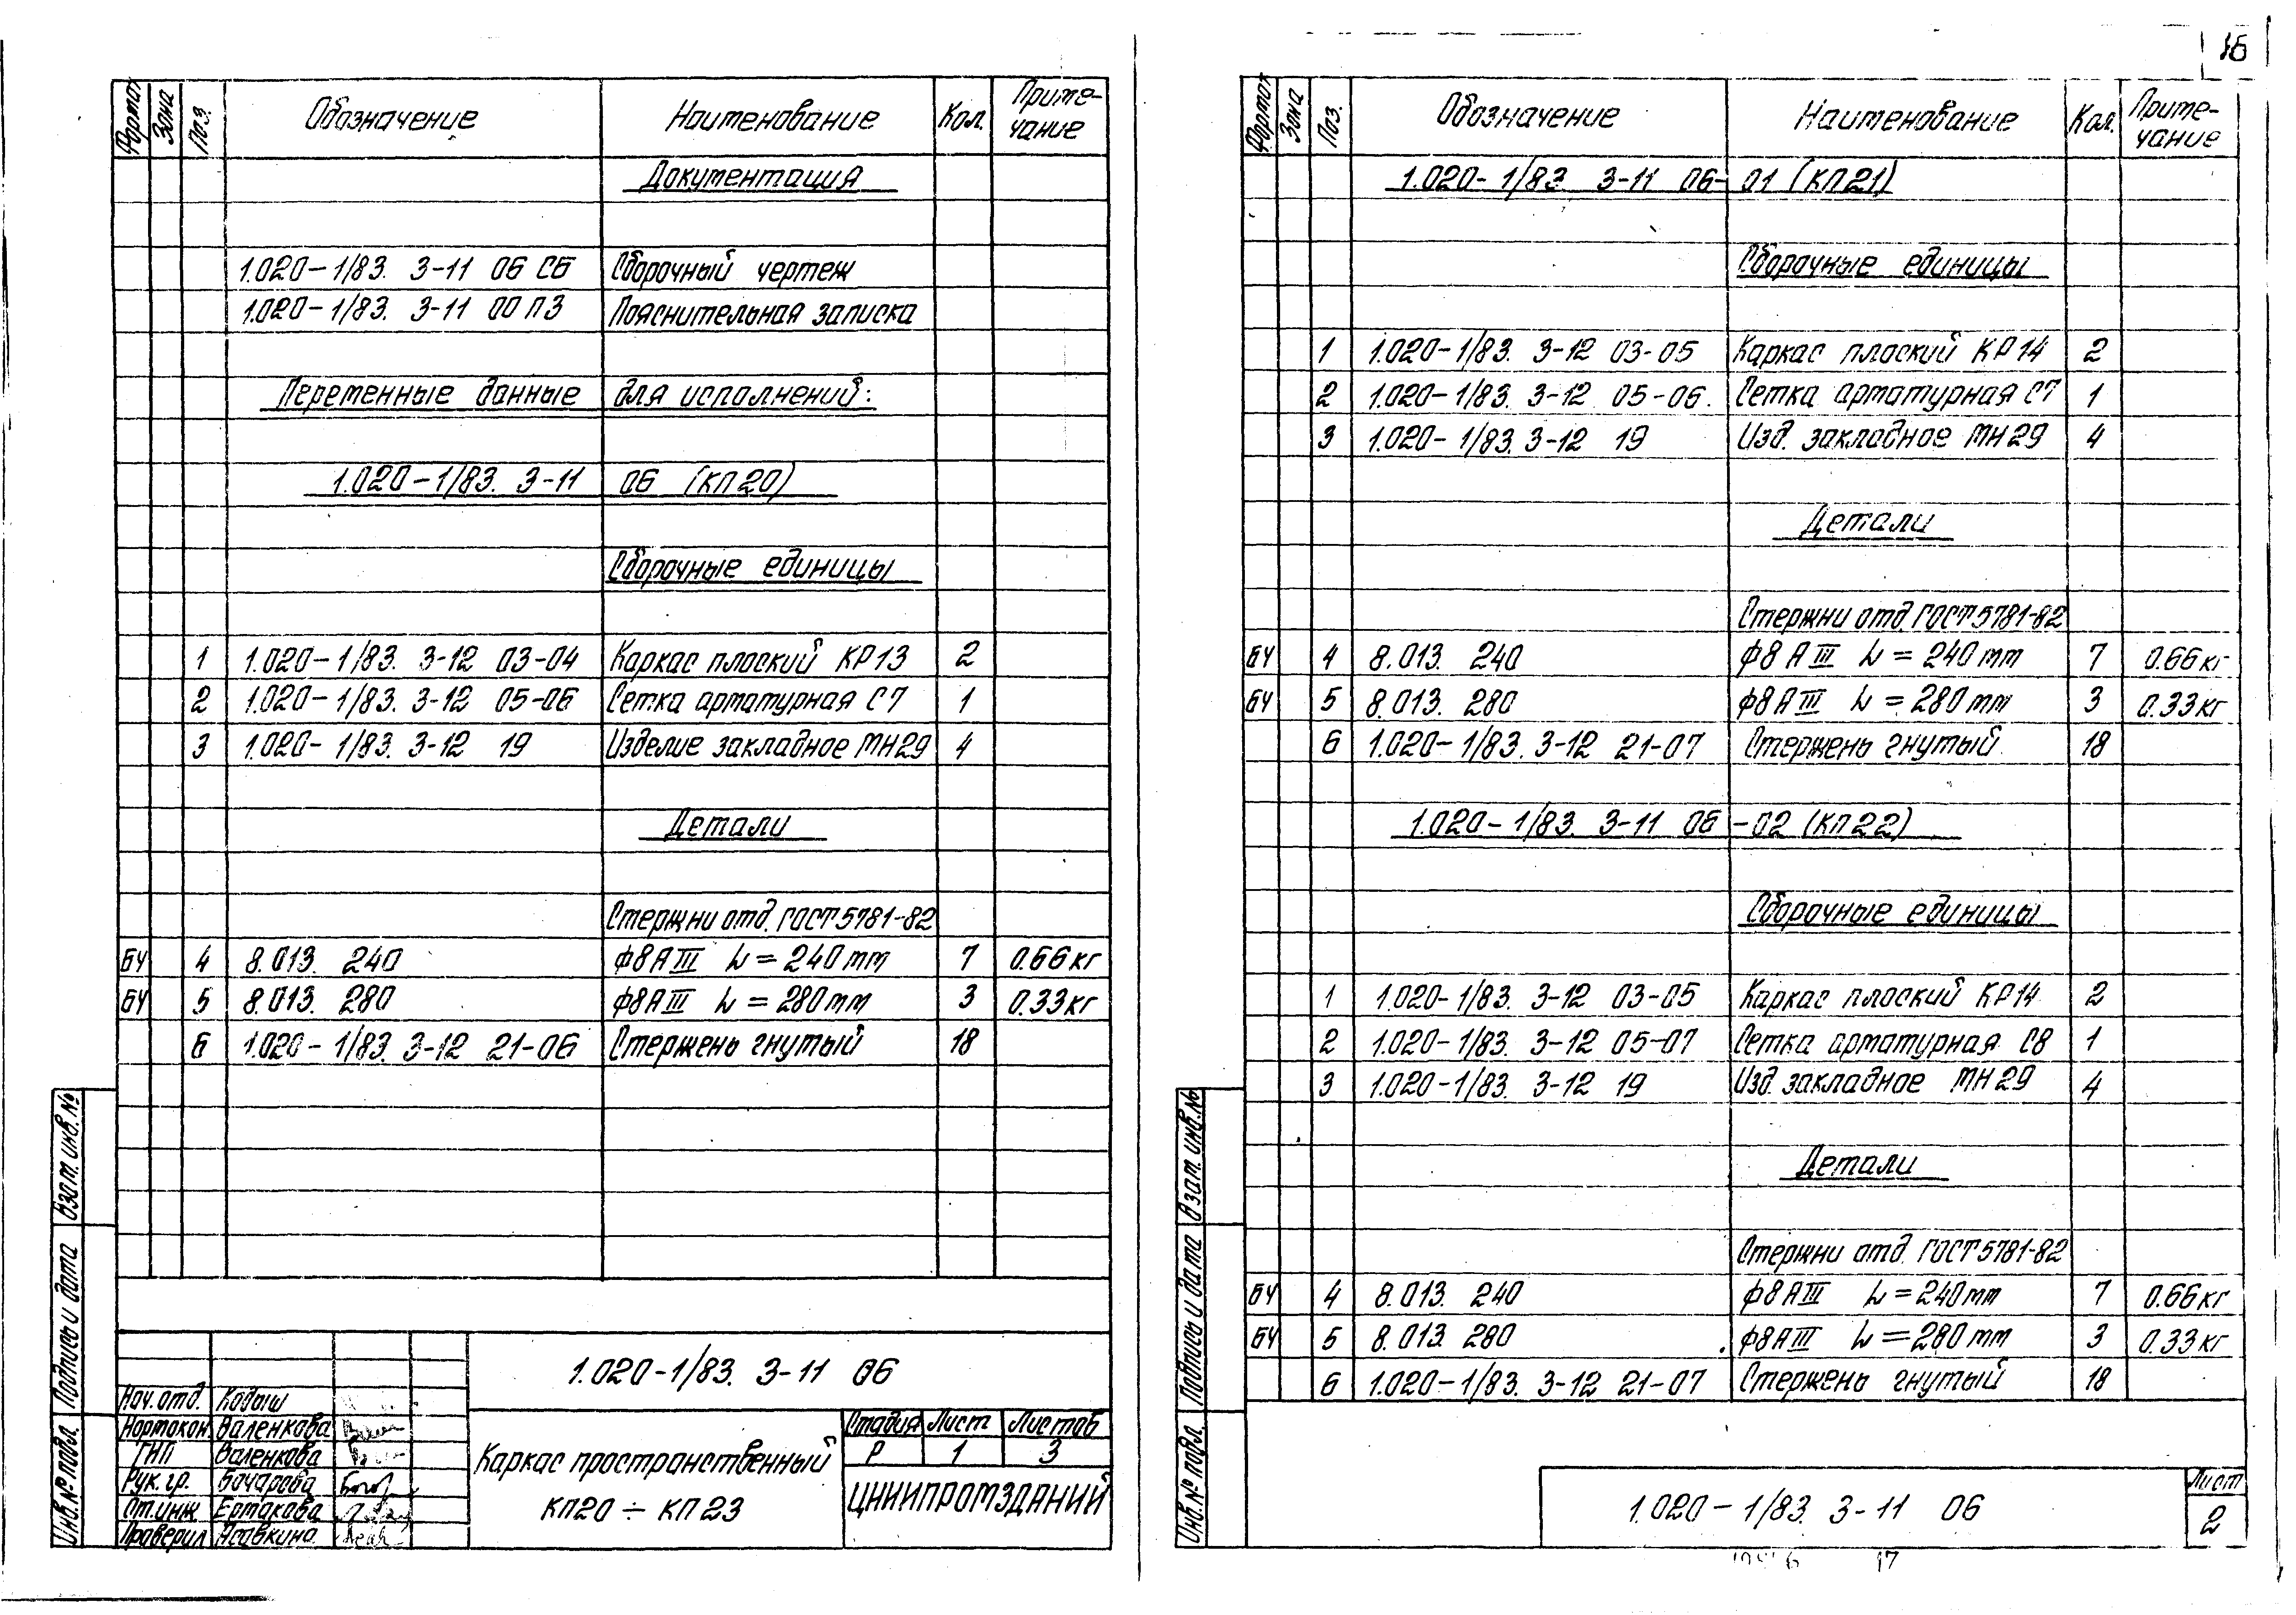 16
Формат Зона Поз. Обозначение Наименование Кол. Приме-
чание
Документация
1.020-1/83. 3-11 06 СБ Сборочный чертеж
1.020-1/83. 3-11 00 ПЗ Пояснительная записка
Переменные данные для исполнений:
1.020-1/83. 3-11 06 (КП20)
Сборочные единицы
1 1.020-1/83. 3-12 03-04 Каркас плоский КР13 2
2 1.020-1/83. 3-12 05-06 Сетка арматурная С7 1
3 1.020-1/83. 3-12 19 Изделие закладное МН29 4
Детали
Стержни отд. ГОСТ 5781-82
БЧ 4 8.013. 240 Ф8АIII L=240мм 7 0.66кг
БЧ 5 8.013. 280 Ф8АIII L=280мм 3 0.33кг
6 1.020-1/83. 3-12 21-06 Стержень гнутый 18
Взам. инв. №
Подпись и дата
Инв. № подл.
Нач. отд. Кодыш
Нормокон Валенкова
ГИП Валенкова
Рук. гр. Бочарова
Ст. инж Ермакова
Проверил
1.020-1/83. 3-11 06
Каркас пространственный
КП20 ÷ КП23
Стадия Лист Листов
Р 1 3
ЦНИИПРОМЗДАНИЙ
Формат Зона Поз. Обозначение Наименование Кол. Приме-
чание
1.020-1/83 3-11 06-01 (КП21)
Сборочные единицы
1 1.020-1/83. 3-12 03-05 Каркас плоский КР14 2
2 1.020-1/83. 3-12 05-06. Сетка арматурная С7 1
3 1.020-1/83. 3-12 19 Изд. закладное МН29 4
Детали
Стержни отд. ГОСТ 5781-82
БЧ 4 8.013. 240 Ф8АIII L=240мм 7 0.66кг
БЧ 5 8.013. 280 Ф8АIII L=280мм 3 0.33кг
6 1.020-1/83. 3-12 21-07 Стержень гнутый 18
1.020-1/83. 3-11 06-02 (КП22)
Сборочные единицы
1 1.020-1/83. 3-12 03-05 Каркас плоский КР14 2
2 1.020-1/83. 3-12 05-07 Сетка арматурная С8 1
3 1.020-1/83. 3-12 19 Изд. закладное МН29 4
Детали
Стержни отд. ГОСТ 5781-82
БЧ 4 8.013. 240 Ф8АIII L=240мм 7 0.66кг
БЧ 5 8.013 280 Ф8АIII L=280мм 3 0.33кг
6 1.020-1/83. 3-12 21-07 Стержень гнутый 18
Взам. инв. №
Подпись и дата
Инв. № подл.
1.020-1/83. 3-11 06
Лист
2
17